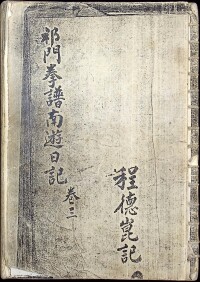 祁門拳譜南遊日記
卷三
程德崑記